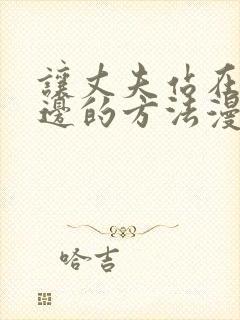 讓丈夫佔在
邊的方法漫
哈吉